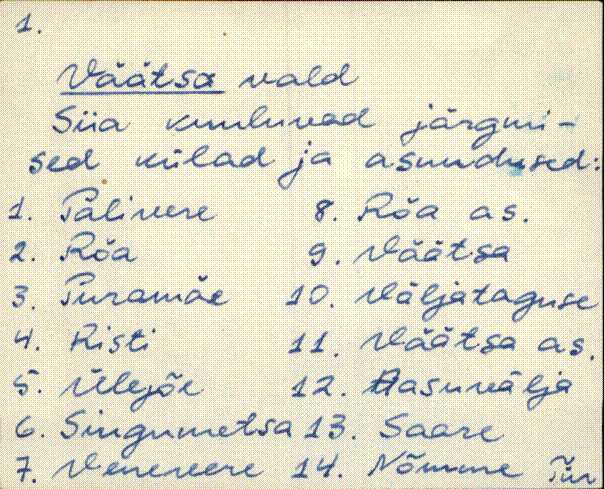 1.
Väätsa vald
Siia kuuluvad järgmi-
sed külad ja asundused:
1. Palivere 8. Röa as.
2. Röa 9. Väätsa
3. Puramäe 10. Väljataguse
4. Risti 11. Väätsa as.
5. Ülejõe 12. Aasuvälja
6. Sungumetsa 13. Saare
7. Venevere 14. Nõmme Tür